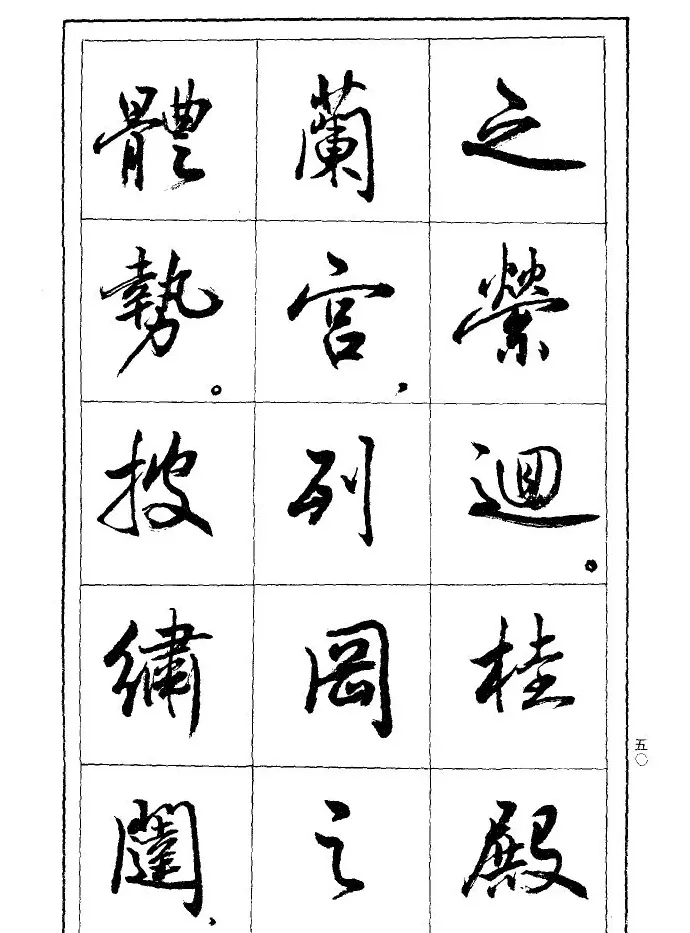 之縈迴。桂殿
蘭宮,列岡之
體勢。披繡闥,
五〇